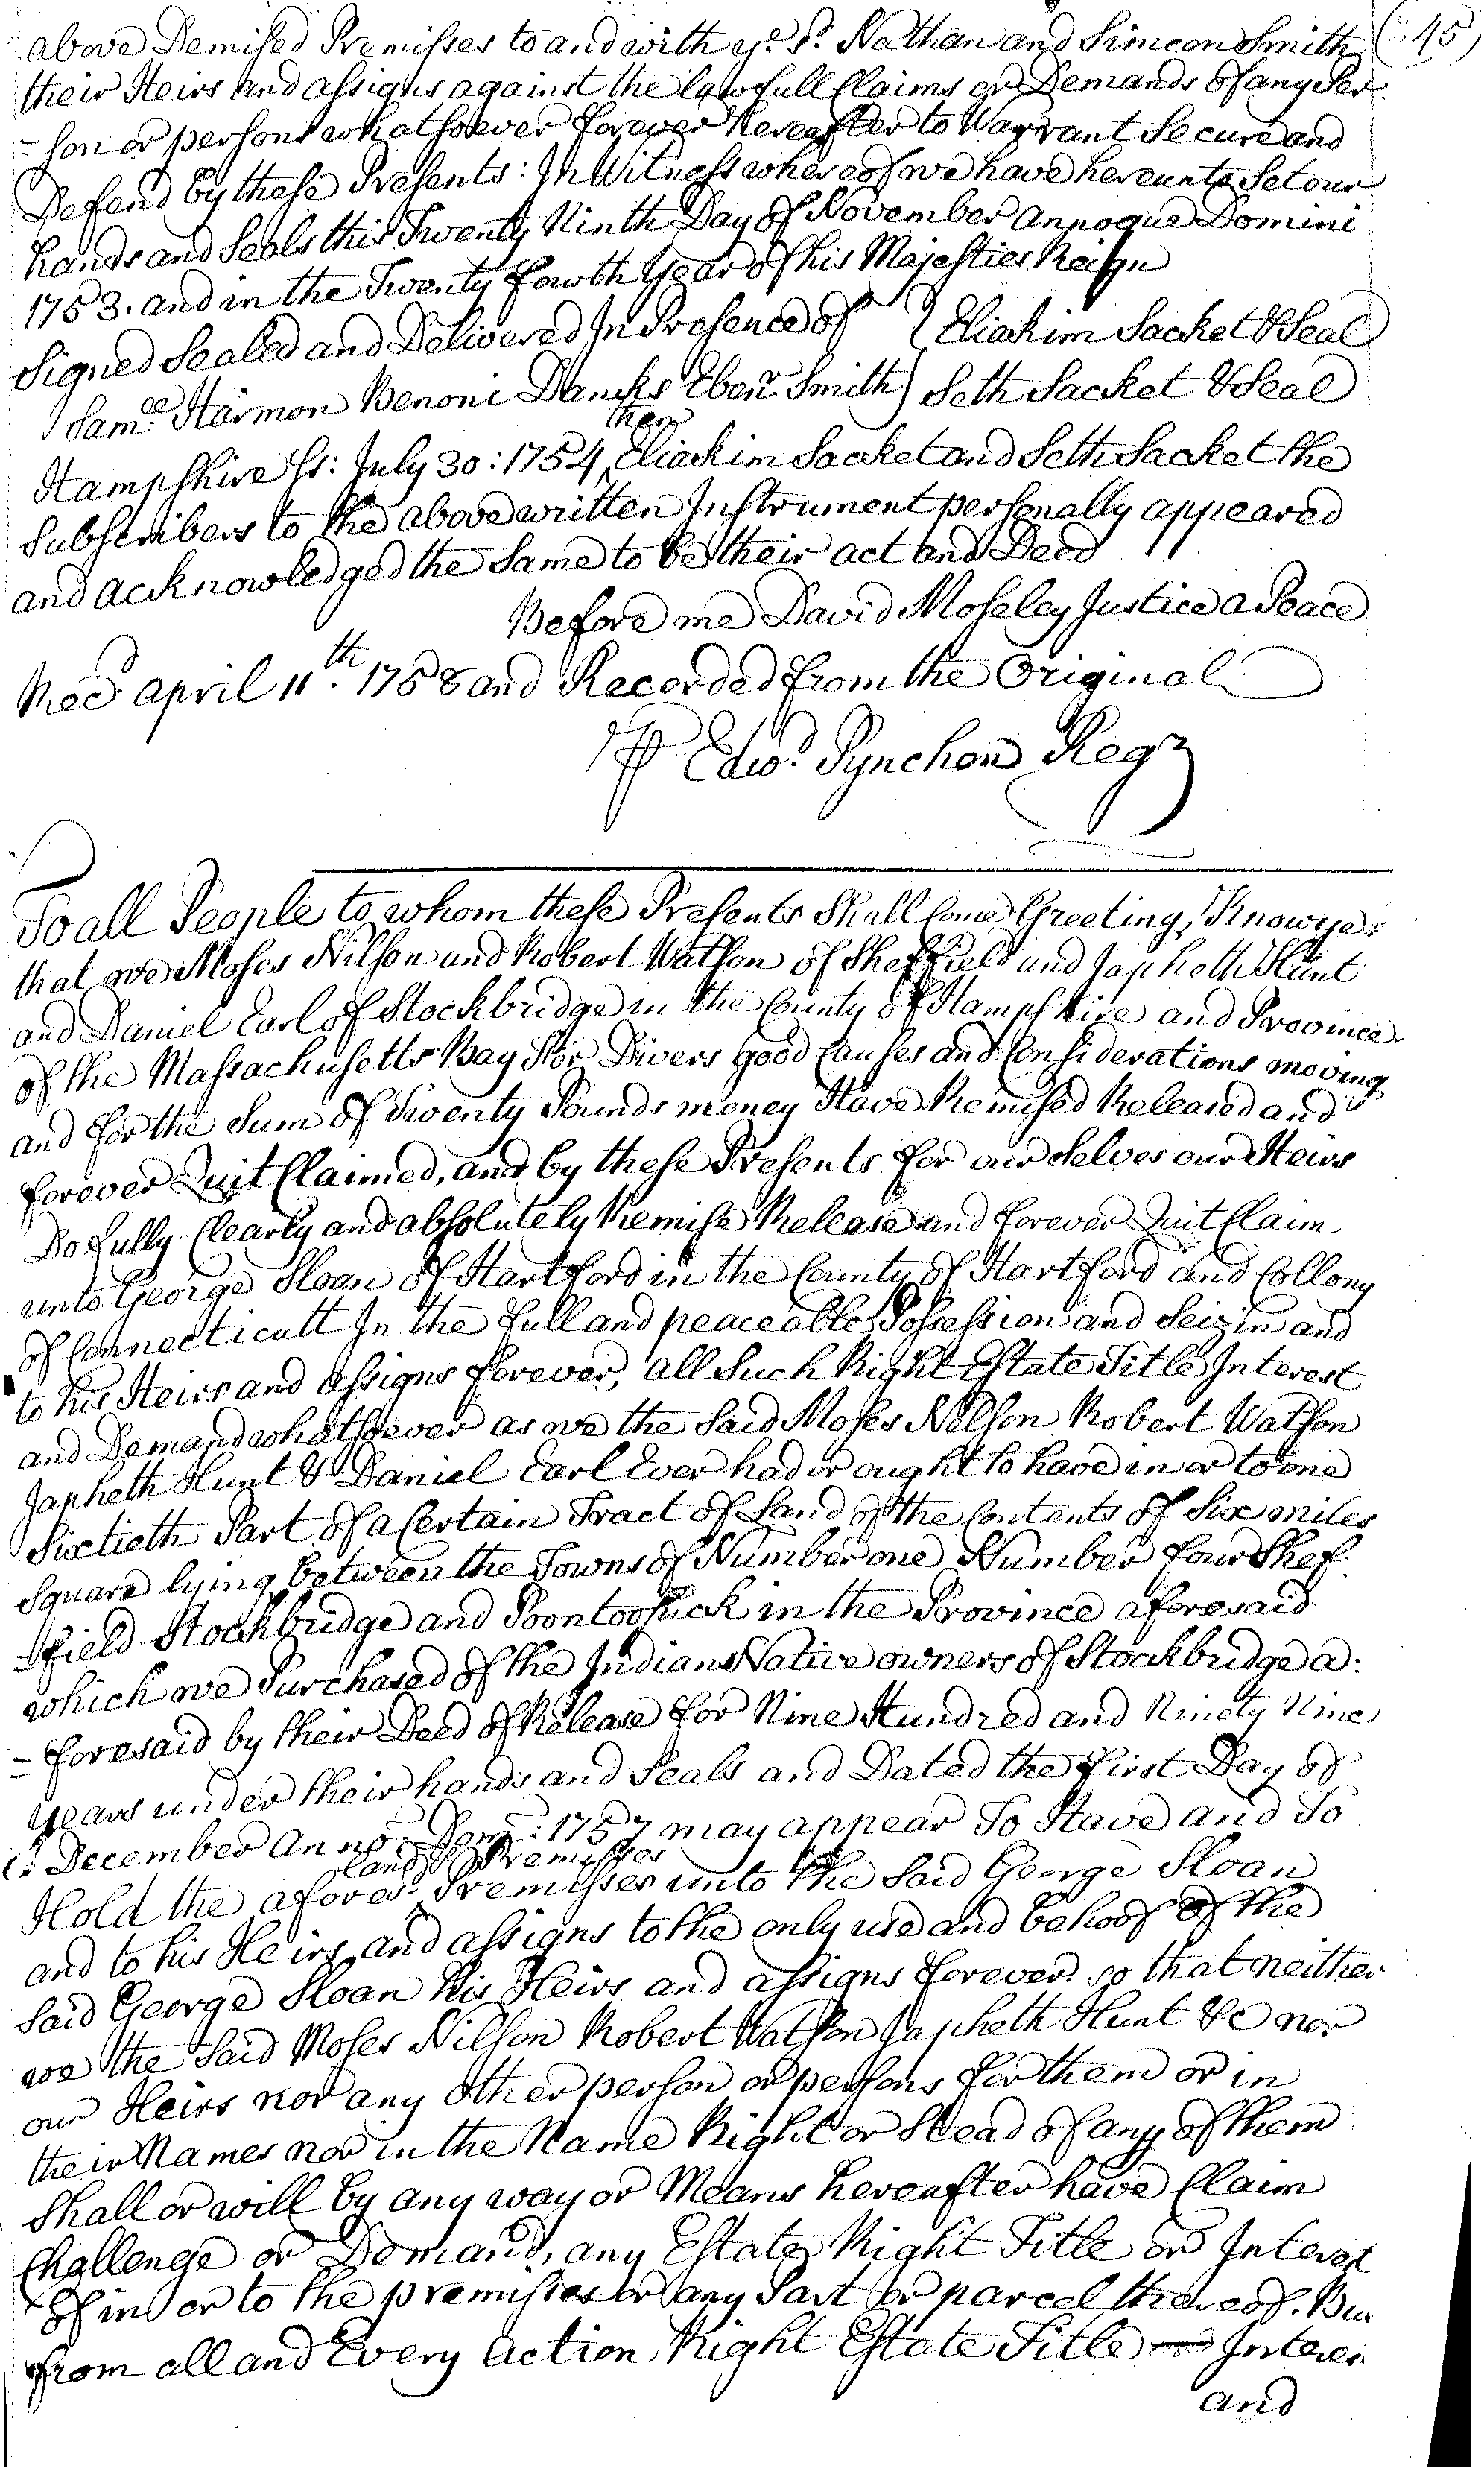 (:45)
above Demised Premisses to and with ye. sd. Nathan and Simeon Smith
their Heirs and assigns against the lawfull Claims or Demands of any Per
=son or persons whatsoever forever hereafter to Warrant Secure and
Defend by these Presents: In Witness whereof we have hereunto Set our
hands and Seals this Twenty Ninth Day of November annoque Domini
1753. and in the Twenty fourth Year of his Majesties Reign
Signed Sealed and Delivered In Presence of } Eliakim Sacket & Seal
Samll. Harmon Benoni Dancks Ebenr. Smith } Seth Sacket & Seal
Hampshire Ss: July 30: 1754 then Eliakim Sacket and Seth Sacket the
Subscribers to the above written Instrument personally appeared
and acknowledged the Same to be their act and Deed
Before me David Moseley Justice a Peace
Recd. april 11th. 1758 and Recorded from the Original
P Edwd. Pynchon Regr
To all People to whom these Presents Shall Come Greeting, Know ye:
that we Moses Nilson and Robert Watson of Sheffield and Japheth Hunt
and Daniel Earl of Stockbridge in the County of Hampshire and Province
of the Massachusetts Bay For Divers good Causes and Considerations moving
and for the Sum of Twenty Pounds money Have Remised Released and
forever Quit Claimed, and by these Presents for our Selves our Heirs
Do fully Clearly and absolutely Remise Release and forever Quit Claim
unto George Sloan of Hartford in the County of Hartford and Collony
of Connecticutt In the full and peaceable Possession and Seizin and
to his Heirs and assigns forever, all Such Right Estate Title Interest
and Demand whatsoever as we the Said Moses Nelson Robert Watson
Japheth Hunt & Daniel Earl Ever had or ought to have in or to one
Sixtieth Part of a Certain Tract of Land of the Contents of Six miles
Square lying between the Towns of Number one Number four Shef:
=field Stockbridge and Poontoosuck in the Province aforesaid
which we Purchased of the Indians Native owners of Stockbridge a:
=foresaid by their Deed of Release for Nine Hundred and Ninety Nine
years under their hands and Seals and Dated the first Day of
December anno: Dom: 1757 may appear To Have and To
land & Premisses
Hold the afores. Premisses unto the Said George Sloan
and to his Heirs and assigns to the only use and behoof of the
Said George Sloan his Heirs and assigns forever so that neither
we the Said Moses Nilson Robert Watson Japheth Hunt &c nor
our Heirs nor any other person or persons for them or in
their Names nor in the Name Right or Stead of any of them
Shall or will by any way or Means hereafter have Claim
Challenge or Demand, any Estate Right Title or Interest
of in or to the premisses or any Part or parcel thereof. Bu
from all and Every action Right Estate Title — Interes
and